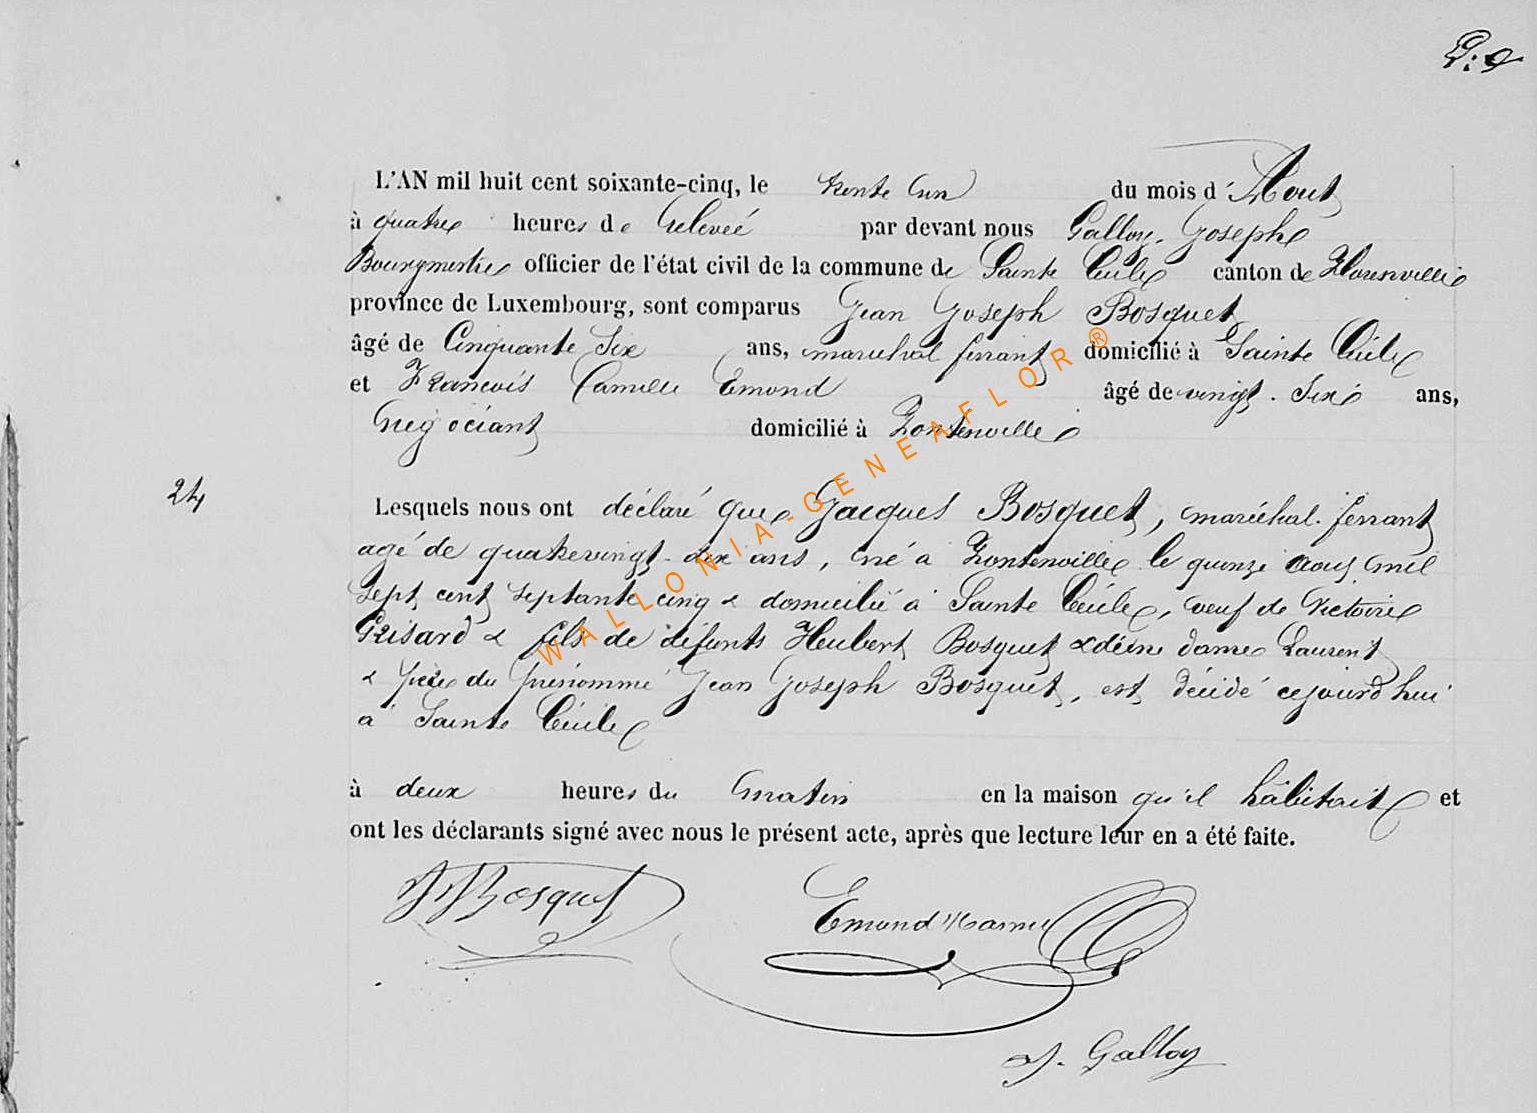 L'AN mil huit cent soixante-cinq, le trente un du mois d'Aout
à quatre heures de relevée par devant nous Galloy Joseph
Bourgmestre officier de l'état civil de la commune de Sainte Cécile canton de Florenville
province de Luxembourg, sont comparus Jean Joseph Bosquet
âgé de Cinquante Six ans, maréchal ferrant domicilié à Sainte Cécile
et François Camille Emond âgé de vingt. Six ans,
négociant domicilié à Fontenoille
24
Lesquels nous ont déclaré que Jacques Bosquet, maréchal. ferrant
agé de quatrevingt-dix ans, né à Fontenoille le quinze aout mil
sept cent septante cinq & domicilié à Sainte Cécile, veuf de Victoire
Grisard & fils de défunts Heubert Bosquet & dame Laurent
& père du prénommé Jean Joseph Bosquet, est décédé cejourd'hui
à Sainte Cécile
à deux heures du matin en la maison qu'il habitait et
ont les déclarants signé avec nous le présent acte, après que lecture leur en a été faite.
JJBosquet Emond
J. Galloy
WALLONIA-GENEAFLOR®